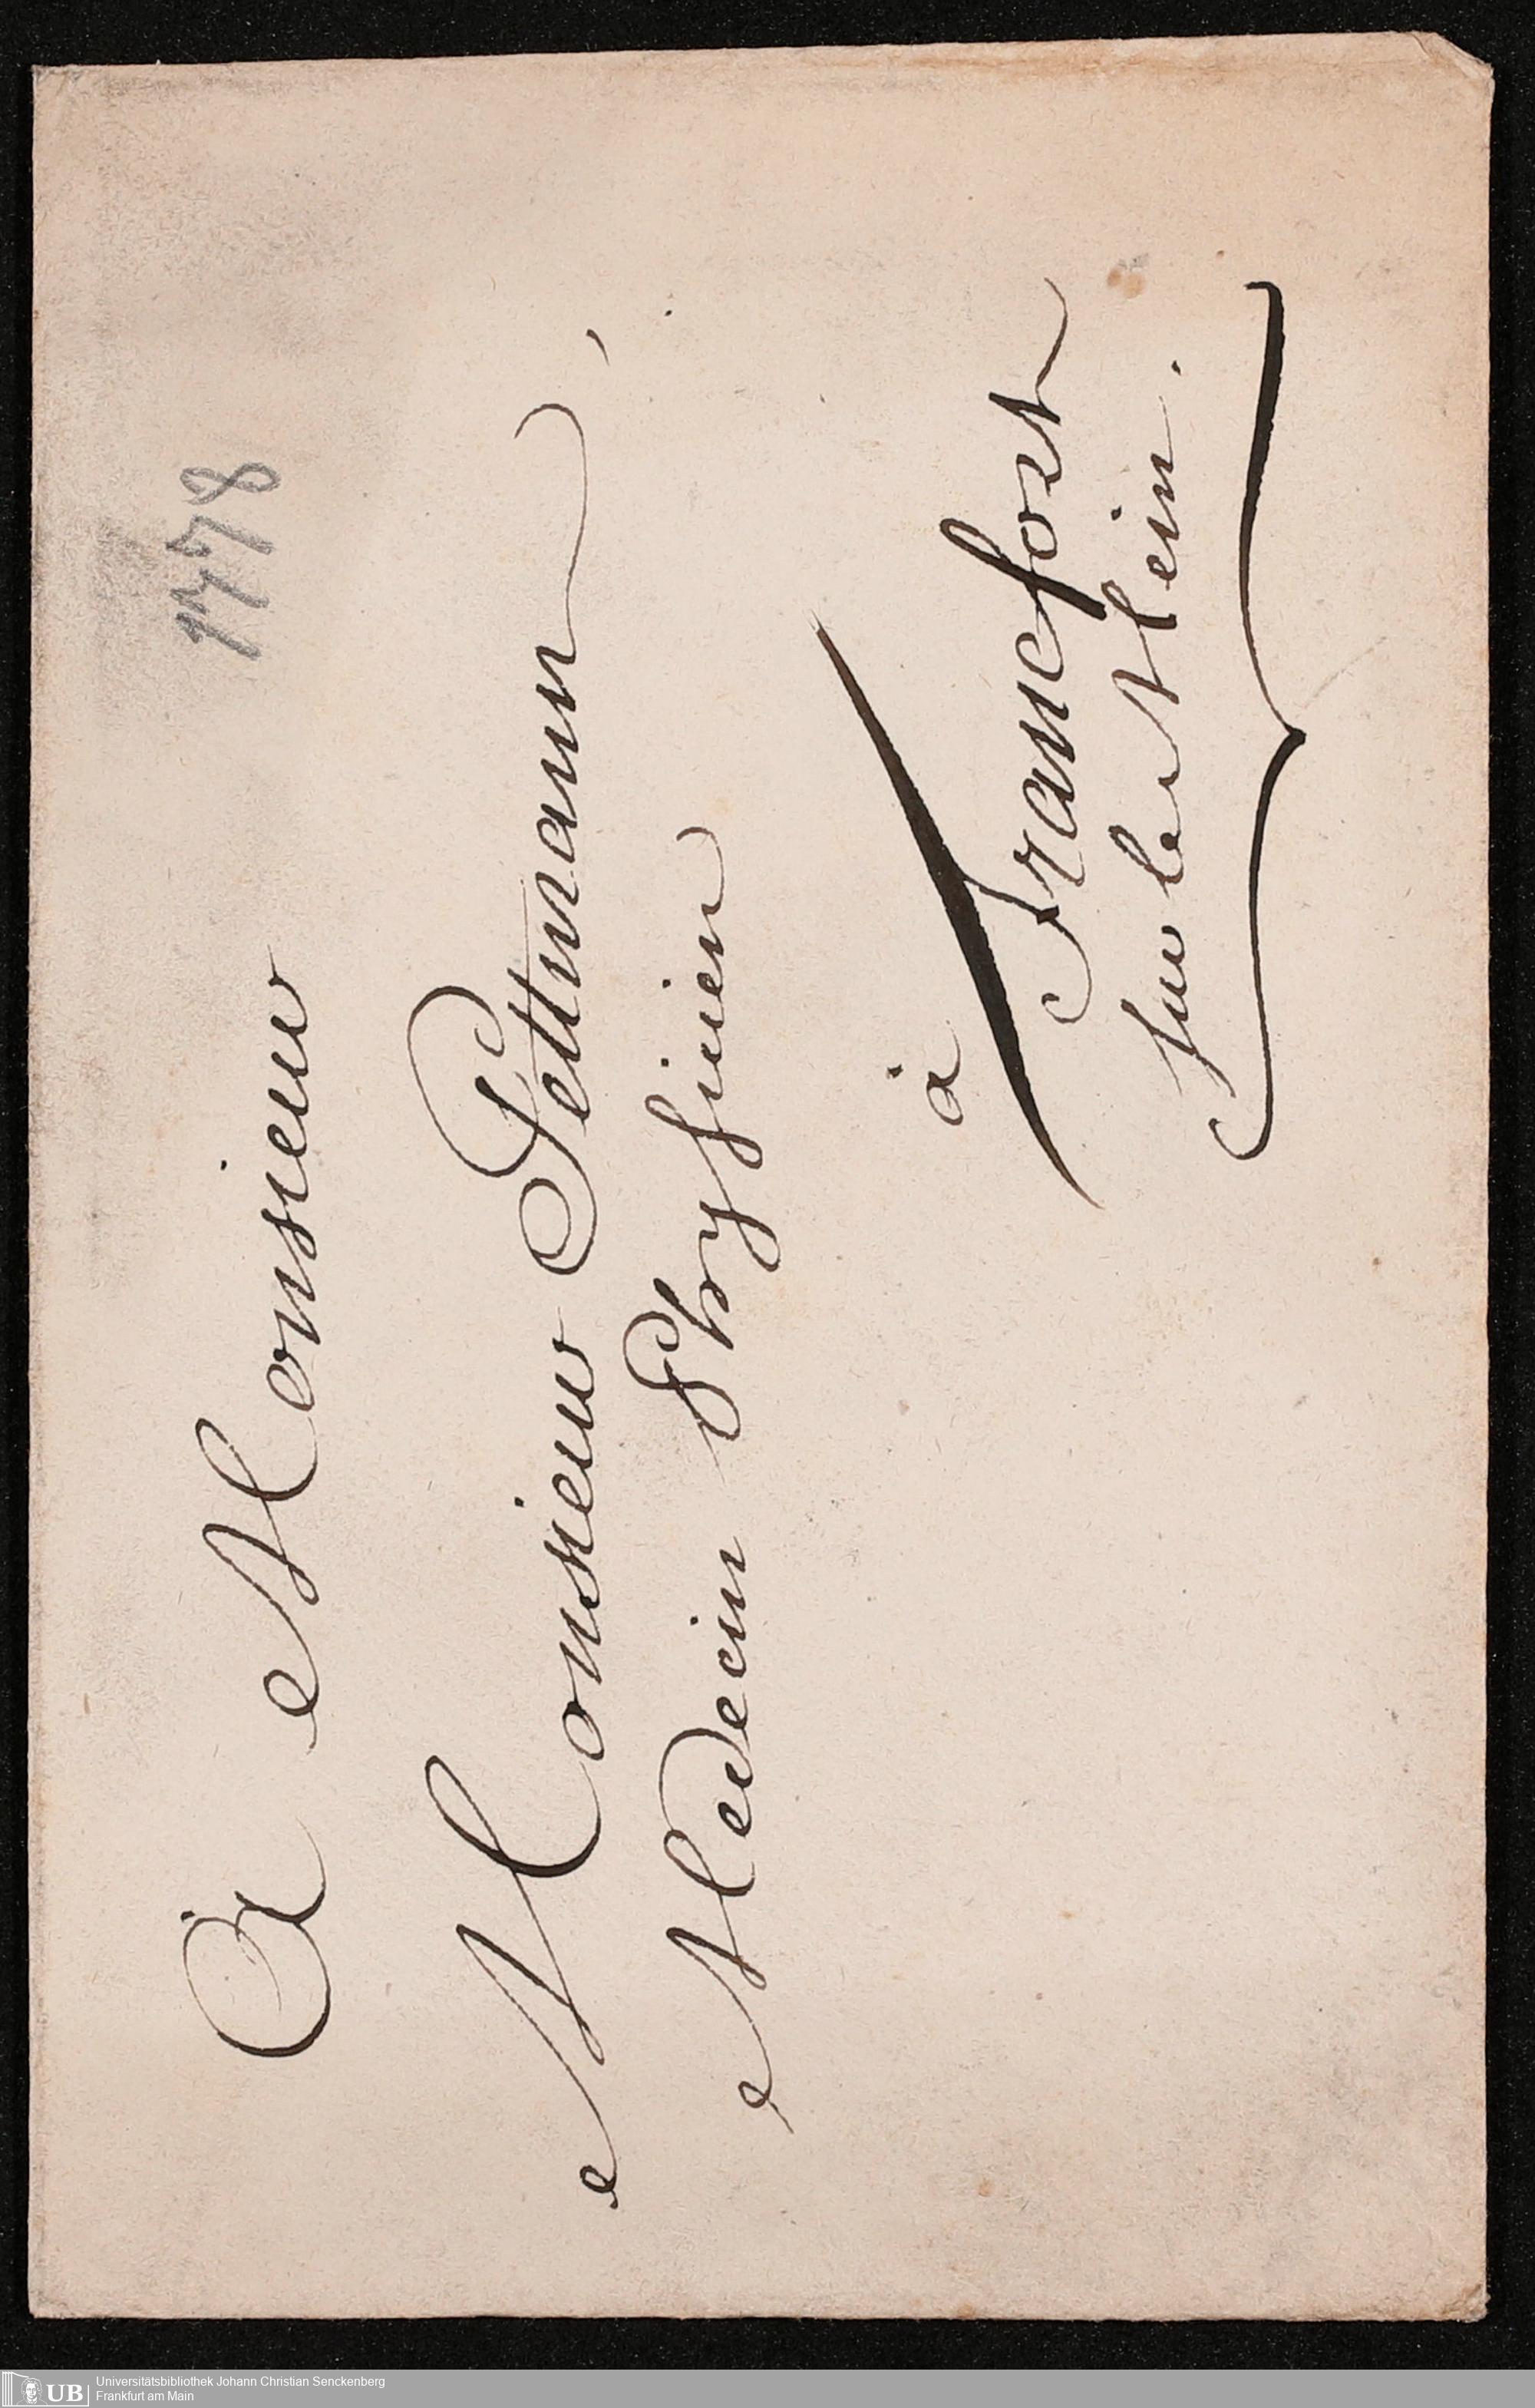 1778
A Monsieur
Monsieur Pettmann,
Medecin Physicien
à
Francfort
sur le Mein.
UB Universitätsbibliothek Johann Christian Senckenberg
Frankfurt am Main